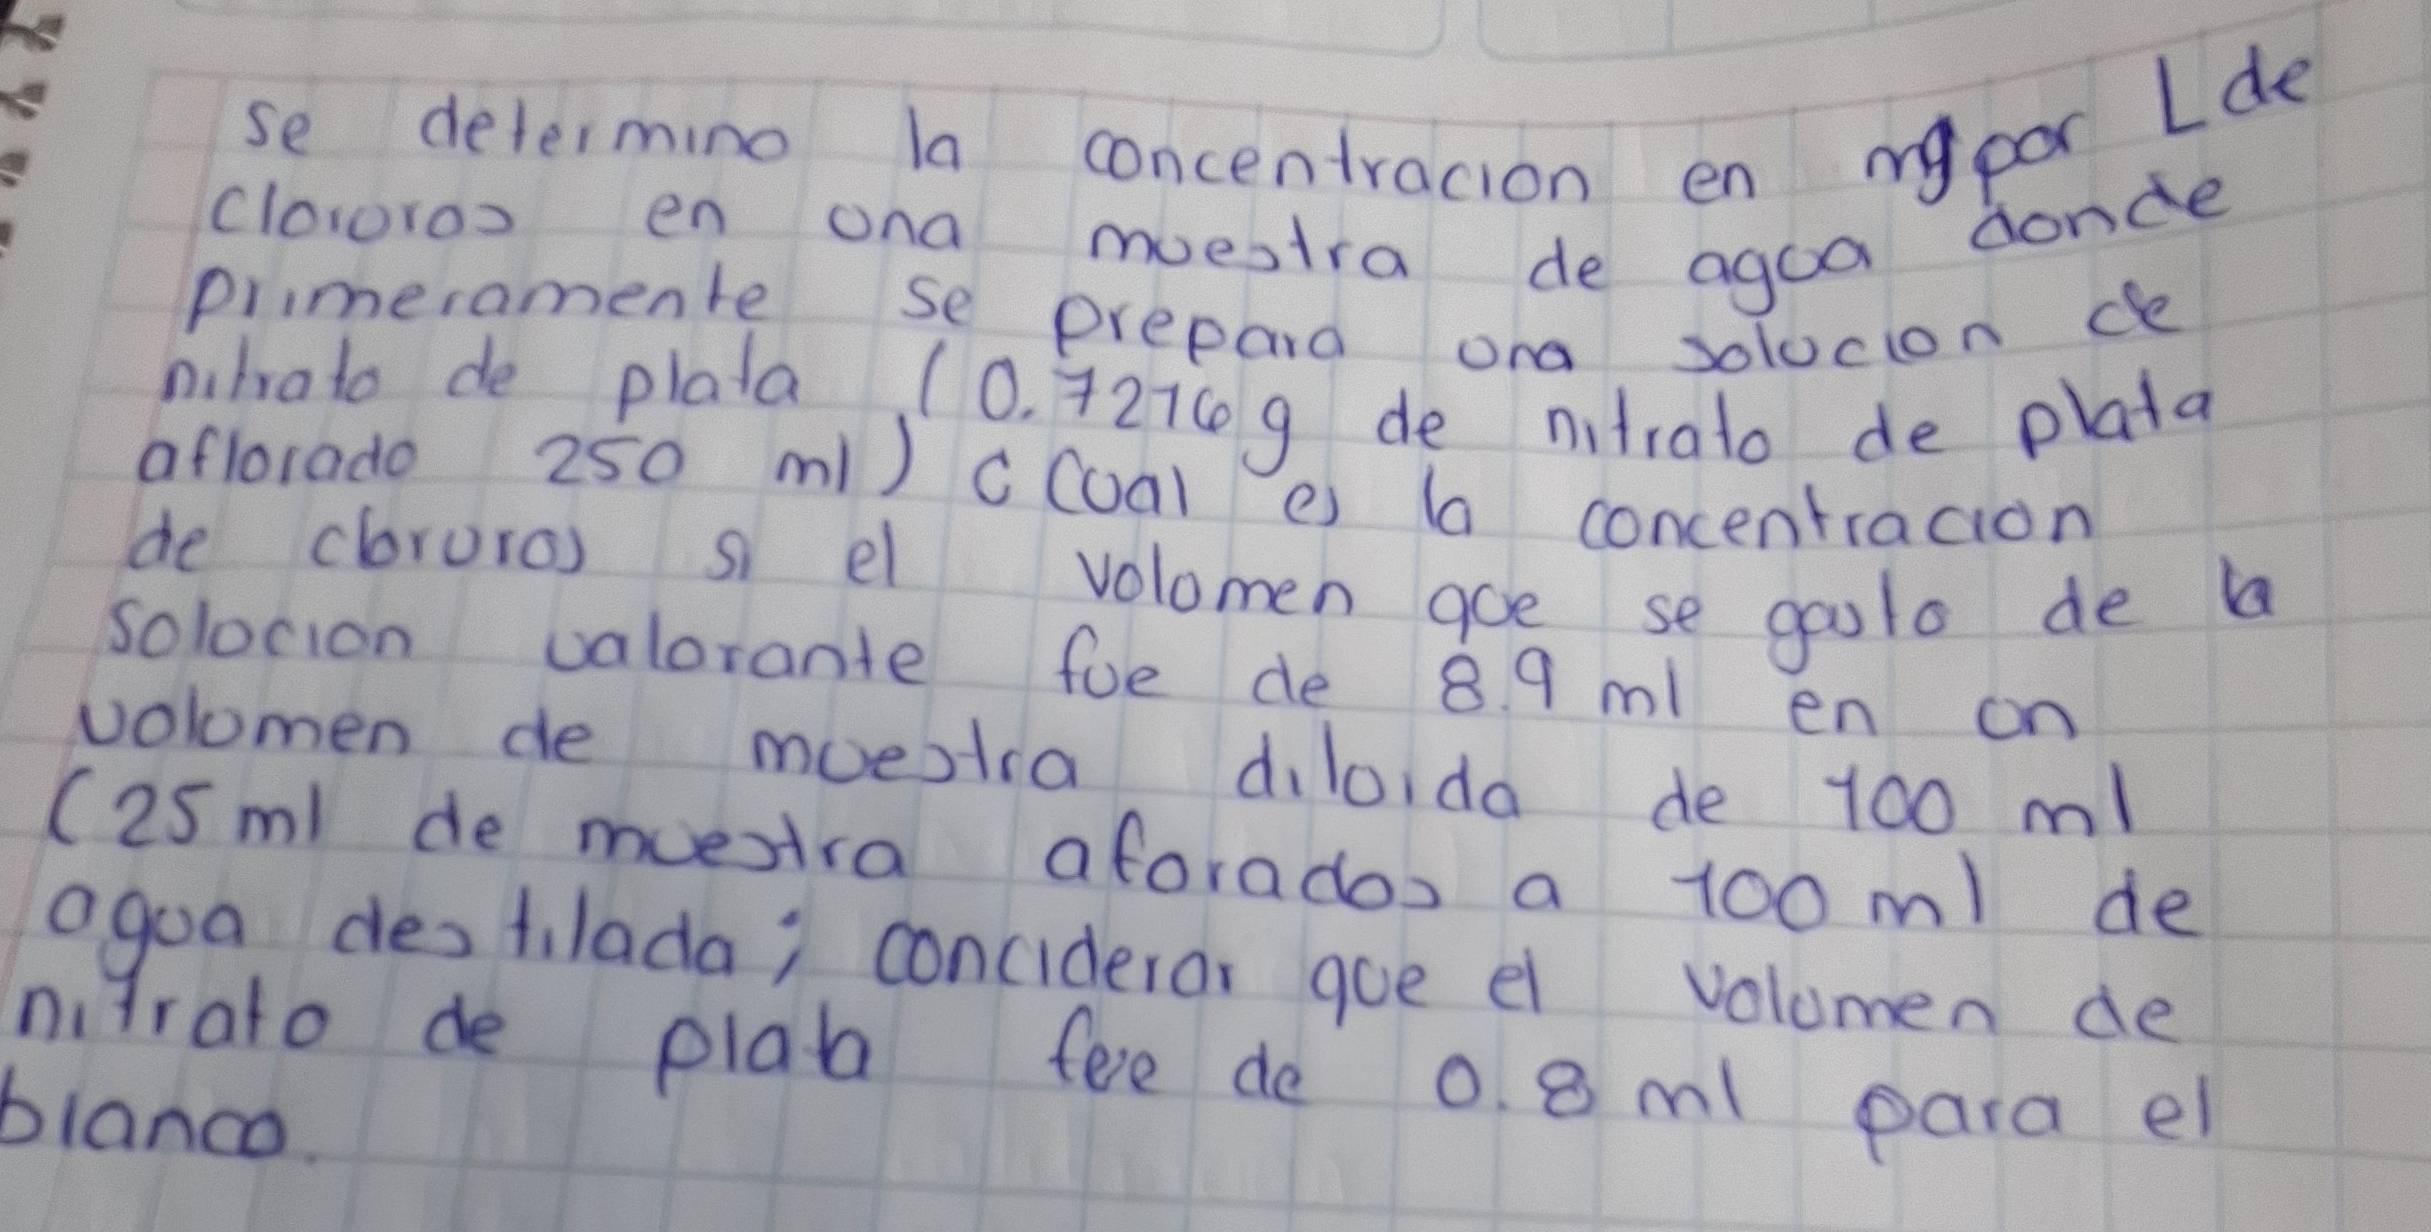 se determino la concentracion en mg por L de
cloruros en una muestra de agua donde
primeramente se prepara una solucion de
nitrato de plata (0.7216g de nitrato de plata
aflorado 250 ml) ¿Cual es la concentracion
de cloruros si el volumen que se gasto de la
solucion valorante fue de 8.9 ml en un
volumen de muestra diluida de 100 ml
(25 ml de muestra aforados a 100 ml de
agua destilada; conciderar que el volumen de
nitrato de plata fue de 0.8 ml para el
blanco.